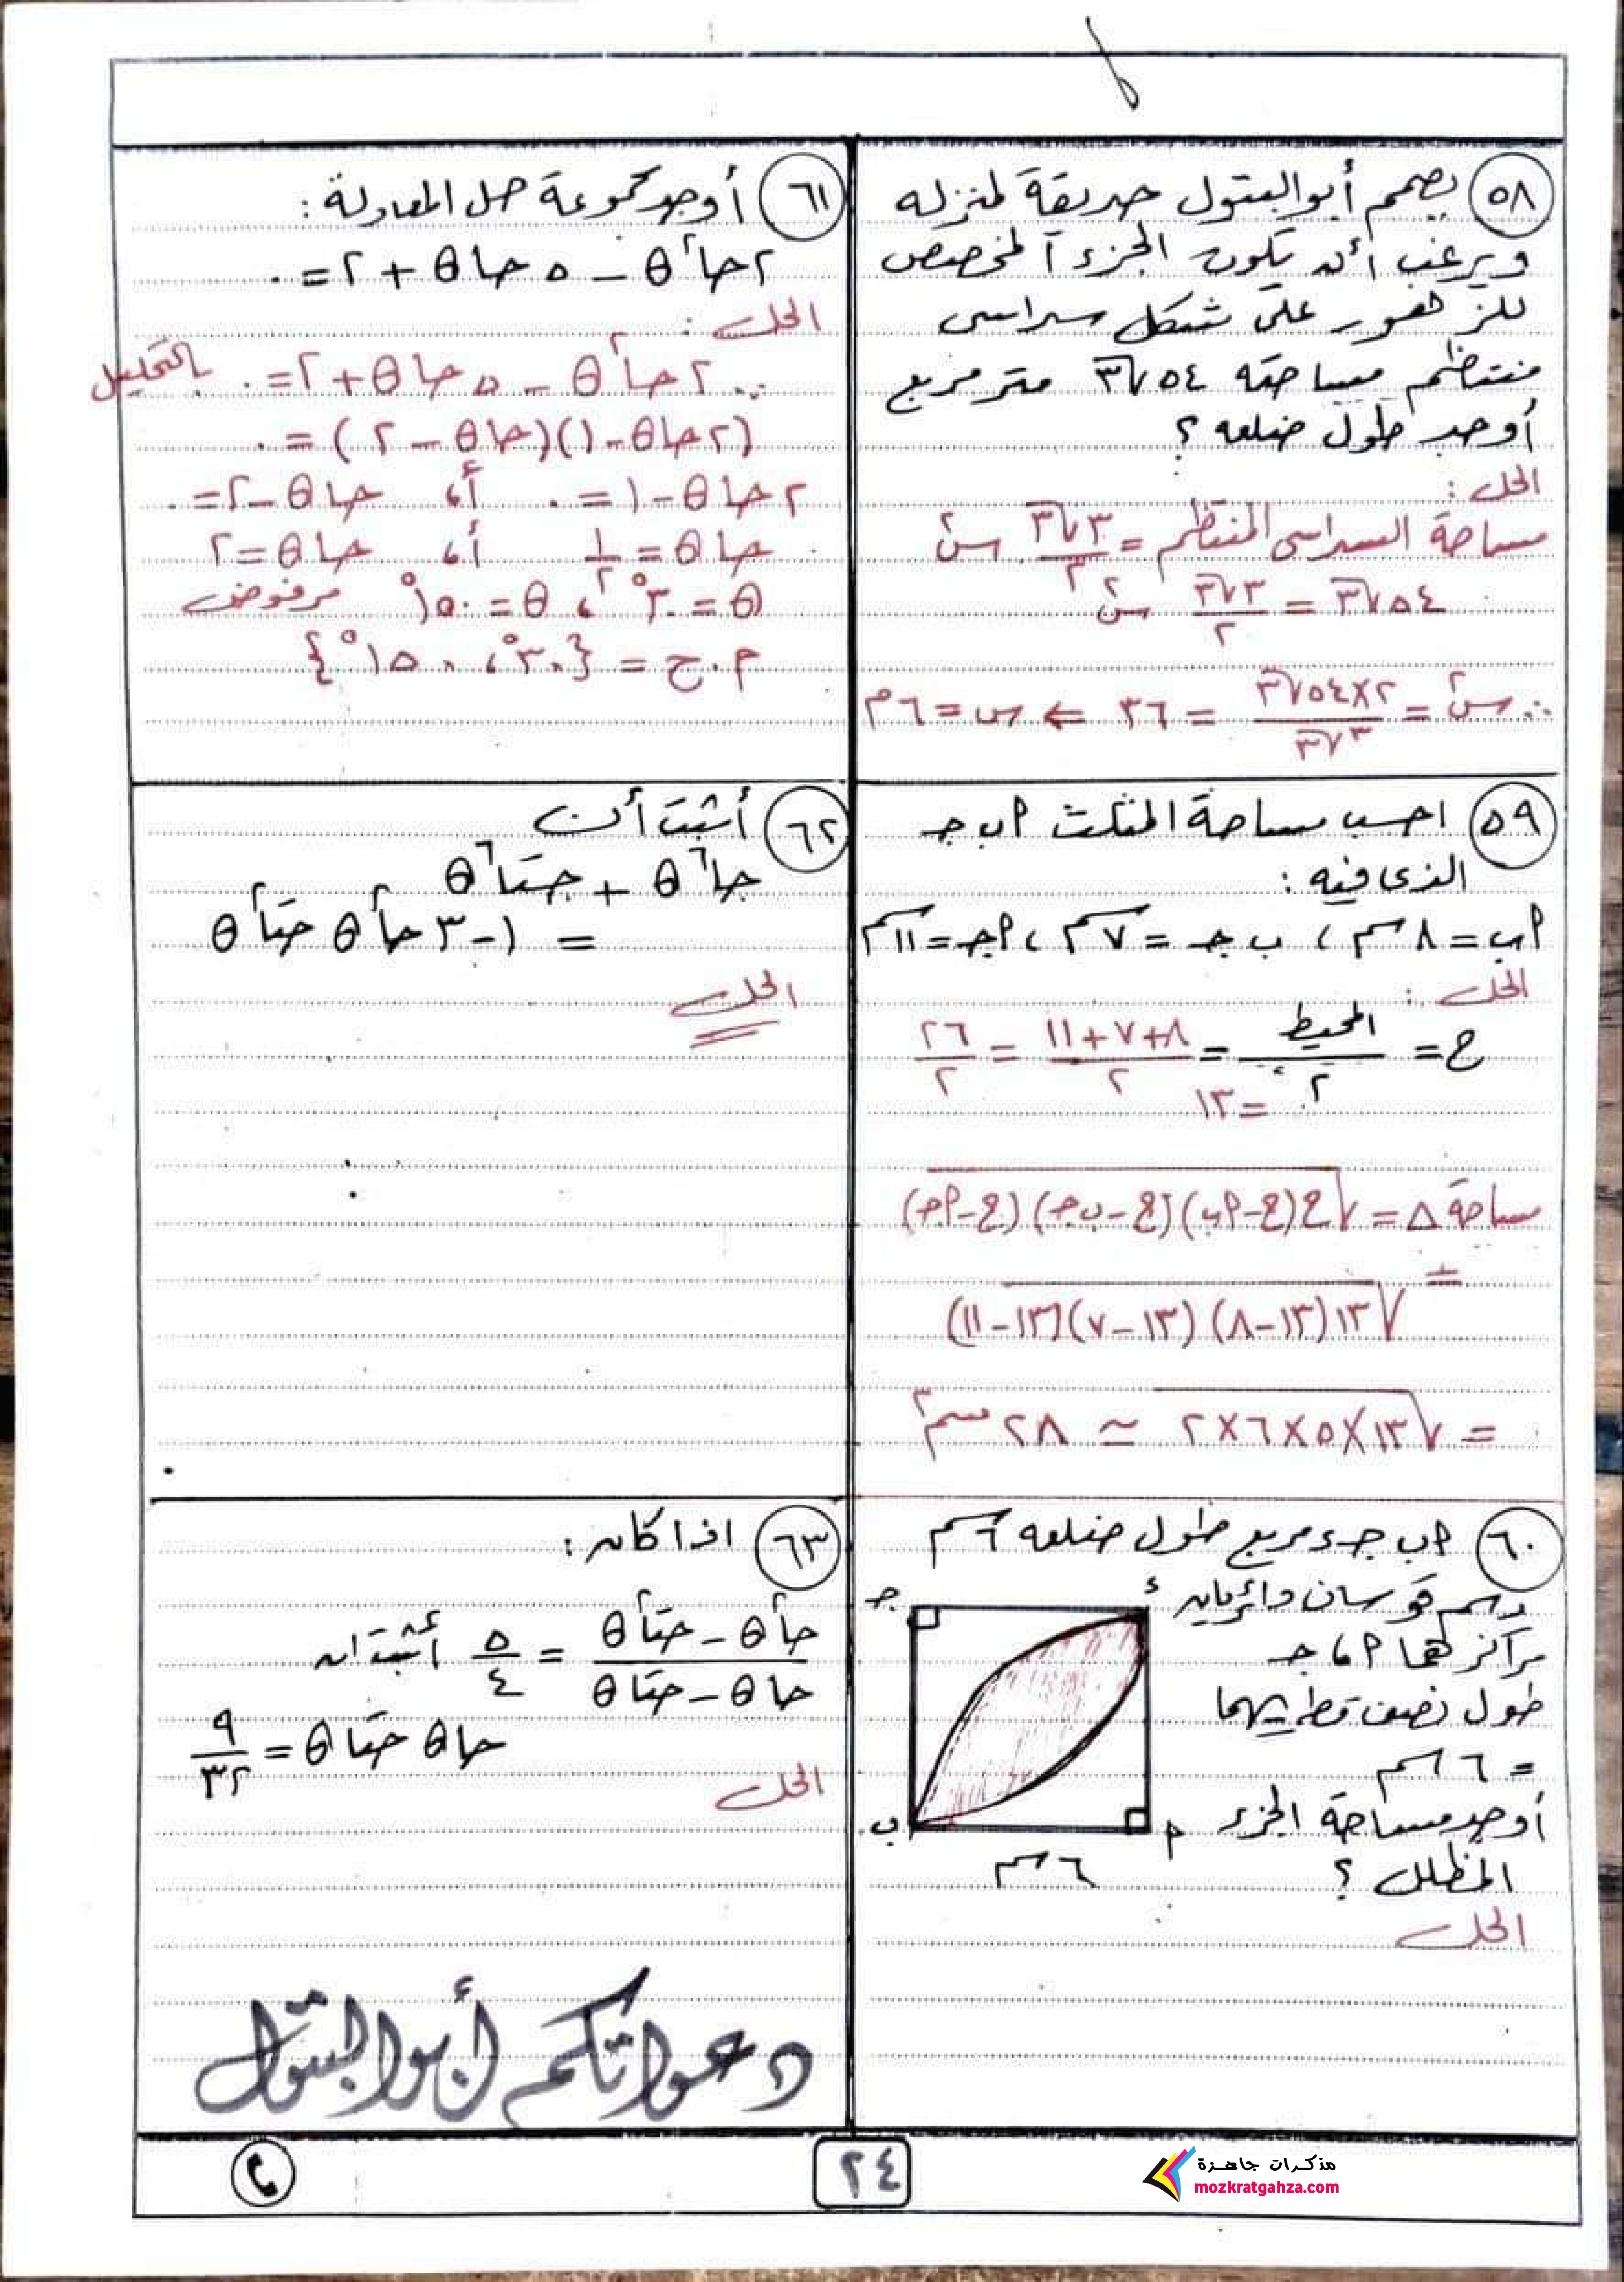 ٥٨ يصمم أبوالبتول حديقة لمنزله
ويرغب أن يكون الجزء المخصص
للزهور على شكل سداسى
منتظم مساحته ٥٤√٣ متر مربع
أوجد طول ضلعه ؟
الحل :
مساحة السداسى المنتظم = ٣√٣/٢ س٢
٥٤√٣ = ٣√٣/٢ س٢
∴ س٢ = ٢×٥٤√٣/٣√٣ = ٣٦ ⇐ س = ٦ م
٥٩ احسب مساحة المثلث أ ب جـ
الذى فيه :
أب = ٨ سم ، ب جـ = ٧ سم ، أجـ = ١١ سم
الحل :
ح = المحيط/٢ = ٨+٧+١١/٢ = ٢٦/٢
= ١٣
مساحة Δ = √ح(ح-أب)(ح-ب جـ)(ح-أجـ)
=
√١٣(١٣-٨)(١٣-٧)(١٣-١١)
= √١٣×٥×٦×٢ ≃ ٢٨ سم٢
٦٠ أب جـ ء مربع طول ضلعه ٦ سم
رسم قوسان دائريان
مراكزهما أ ، جـ
طول نصف قطريهما
= ٦ سم
أوجد مساحة الجزء
المظلل ؟
جـ
ء
ب
أ
٦ سم
الحل
٦١ أوجد مجموعة حل المعادلة :
٢حا٢θ - ٥حاθ + ٢ = ٠
الحل :
∵ ٢حا٢θ - ٥حاθ + ٢ = ٠ بالتحليل
(٢حاθ - ١)(حاθ - ٢) = ٠
٢حاθ - ١ = ٠ أ، حاθ - ٢ = ٠
حاθ = ١/٢ أ، حاθ = ٢
θ = ٣٠° ، θ = ١٥٠° مرفوض
م.ح = {٣٠° ، ١٥٠°}
٦٢ أثبت أن
حا٦θ + حتا٦θ
= ١ - ٣حا٢θ حتا٢θ
الحل
٦٣ اذا كان :
حا٢θ - حتا٢θ/حاθ - حتاθ = ٥/٤ أثبت ان
حاθ حتاθ = ٩/٣٢
الحل
دعواتكم أبوالبتول
٢٤
مذكرات جاهزة
mozkratgahza.com